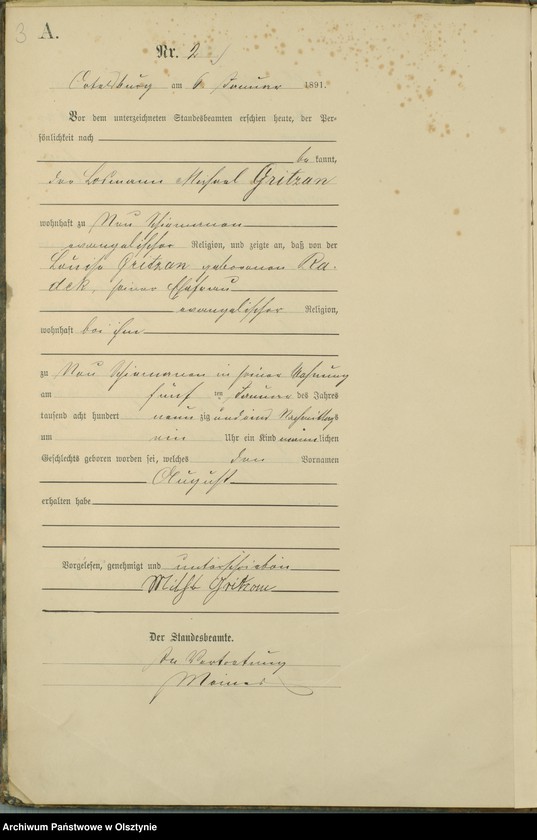 3 A.
Nr. 2
Ortelsburg am 6. Januar 1891.
Vor dem unterzeichneten Standesbeamten erschien heute, der Per-
sönlichkeit nach
be kannt,
der Losmann Michael Gritzan
wohnhaft zu Neu Schiemanen
evangelischer Religion, und zeigte an, daß von der
Louise Gritzan geborenen Ra-
dek, seiner Ehefrau
evangelischer Religion,
wohnhaft bei ihm
zu Neu Schiemanen in seiner Wohnung
am fünf ten Januar des Jahres
tausend acht hundert neun zig und eins Nachmittags
um ein Uhr ein Kind männlichen
Geschlechts geboren worden sei, welches den Vornamen
August
erhalten habe
Vorgelesen, genehmigt und unterschrieben
Gritzan
Der Standesbeamte.
In Vertretung
Archiwum Państwowe w Olsztynie